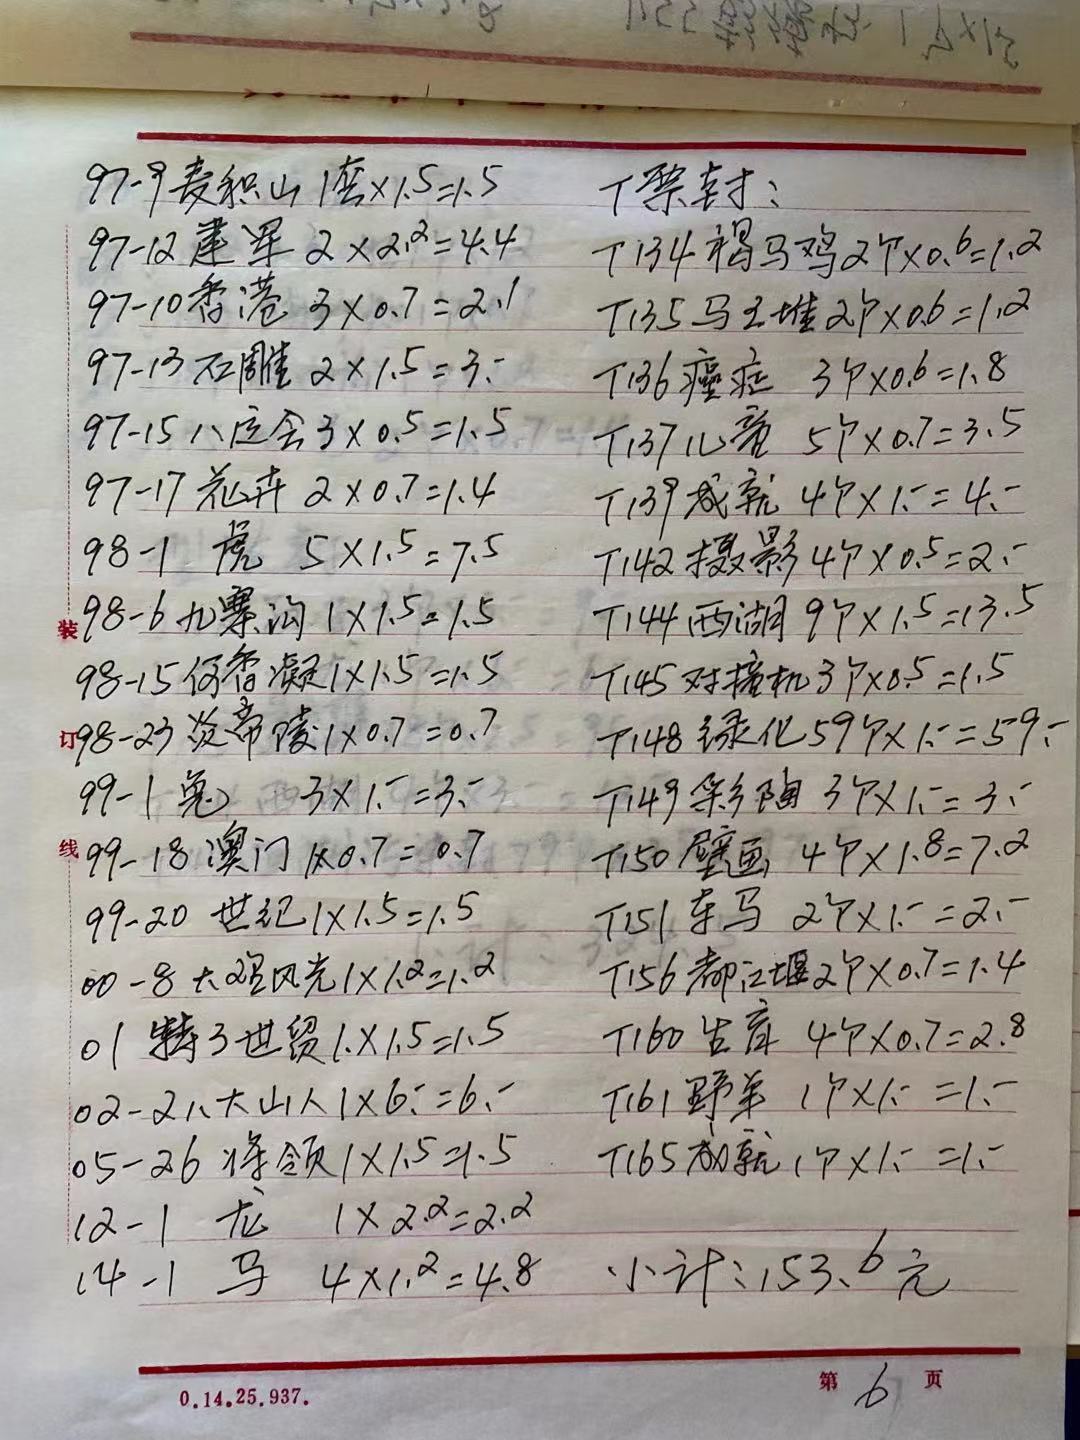 97-9 麦积山 1套×1.5=1.5
97-12 建军 2×2.2=4.4
97-10 香港 3×0.7=2.1
97-13 石雕 2×1.5=3.-
97-15 八运会 3×0.5=1.5
97-17 花卉 2×0.7=1.4
98-1 虎 5×1.5=7.5
98-6 九寨沟 1×1.5=1.5
98-15 何香凝 1×1.5=1.5
98-23 炎帝陵 1×0.7=0.7
99-1 兔 3×1.-=3.-
99-18 澳门 1×0.7=0.7
99-20 世纪 1×1.5=1.5
00-8 大理风光 1×1.2=1.2
01 特3世贸 1×1.5=1.5
02-2 八大山人 1×6.-=6.-
05-26 将领 1×1.5=1.5
12-1 龙 1×2.2=2.2
14-1 马 4×1.2=4.8
T票封:
T134 褐马鸡 2个×0.6=1.2
T135 马王堆 2个×0.6=1.2
T136 癌症 3个×0.6=1.8
T137 儿童 5个×0.7=3.5
T139 成就 4个×1.-=4.-
T142 摄影 4个×0.5=2.-
T144 西湖 9个×1.5=13.5
T145 对撞机 3个×0.5=1.5
T148 绿化 59个×1.-=59.-
T149 彩陶 3个×1.-=3.-
T150 壁画 4个×1.8=7.2
T151 车马 2个×1.-=2.-
T156 都江堰 2个×0.7=1.4
T160 生育 4个×0.7=2.8
T161 野羊 1个×1.-=1.-
T165 成就 1个×1.-=1.-
小计:153.6元
装
订
线
0.14.25.937.
第 6 页